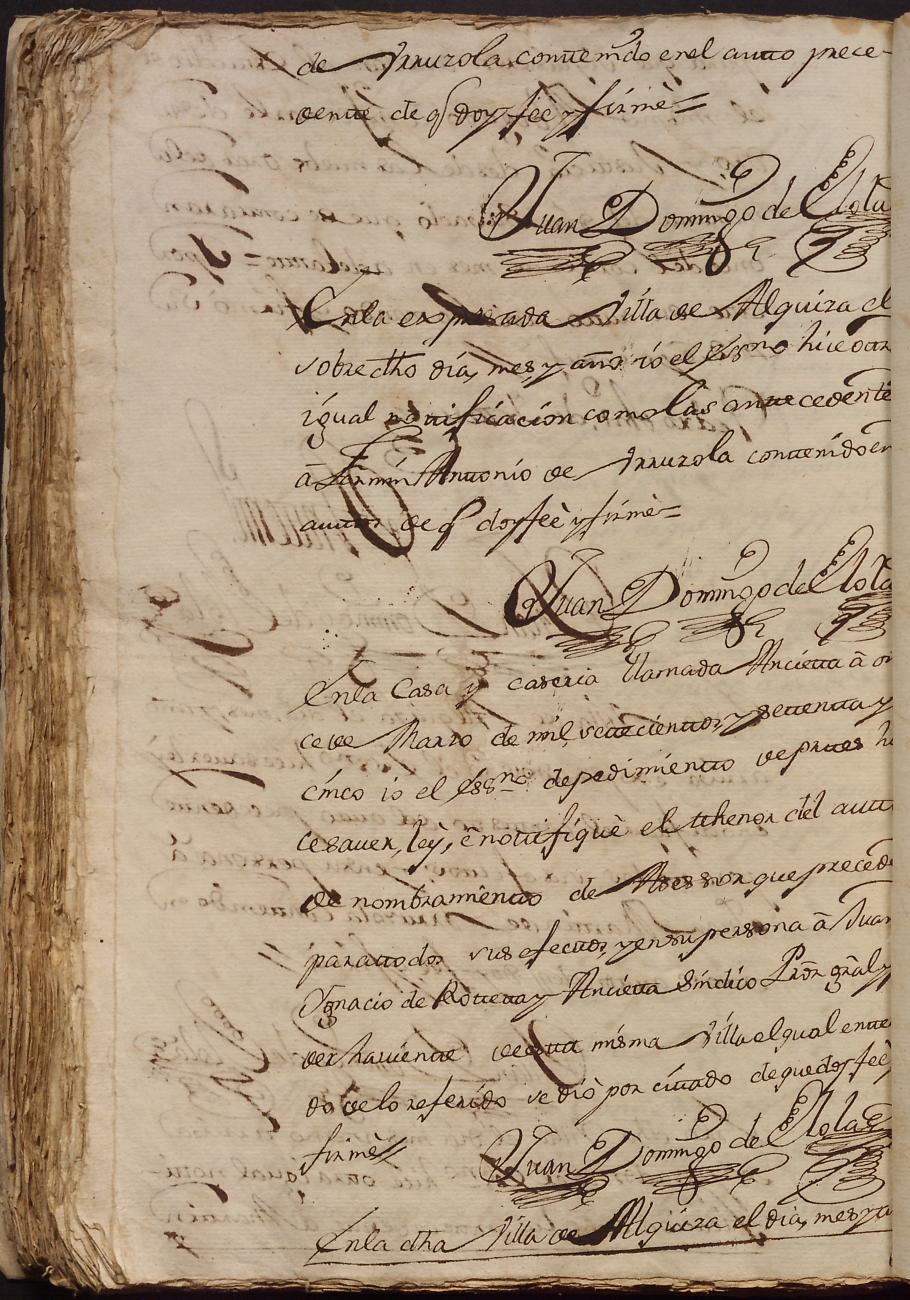 de Yrrurzola contenido en el autto prece-
dente de q̃ doy feè y firmè =
Juan Domingo de Elola
En la expresada Villa de Alquiza el
sobre dho dia, mes, y año io el Essno hize otra
igual nottificacion como las anttecedente
à Fermin Anttonio de Yrrurzola conttenido en
auttos de q̃ doy feè y firmè =
Juan Domingo de Elola
En la Casa y caseria llamada Ancietta à on
ce de Marzo de mil settecienttos y settentta y
cinco io el Essno de pedimientto de parttes hi
ce saver, leỳ, è nottifiquè el tthenor del autt
de nombramientto de Asessor que precede
para ttodos sus efecttos, y en su persona à Juan
Ygnacio de Rottetta y Ancietta Sindico Prõr grãl y
der haviente de estta misma Villa el qual entte
do de lo referido se diò por cittado de que doy feè
firmè
Juan Domingo de Elola
En la dha Villa de Alquiza el dia, mes y a